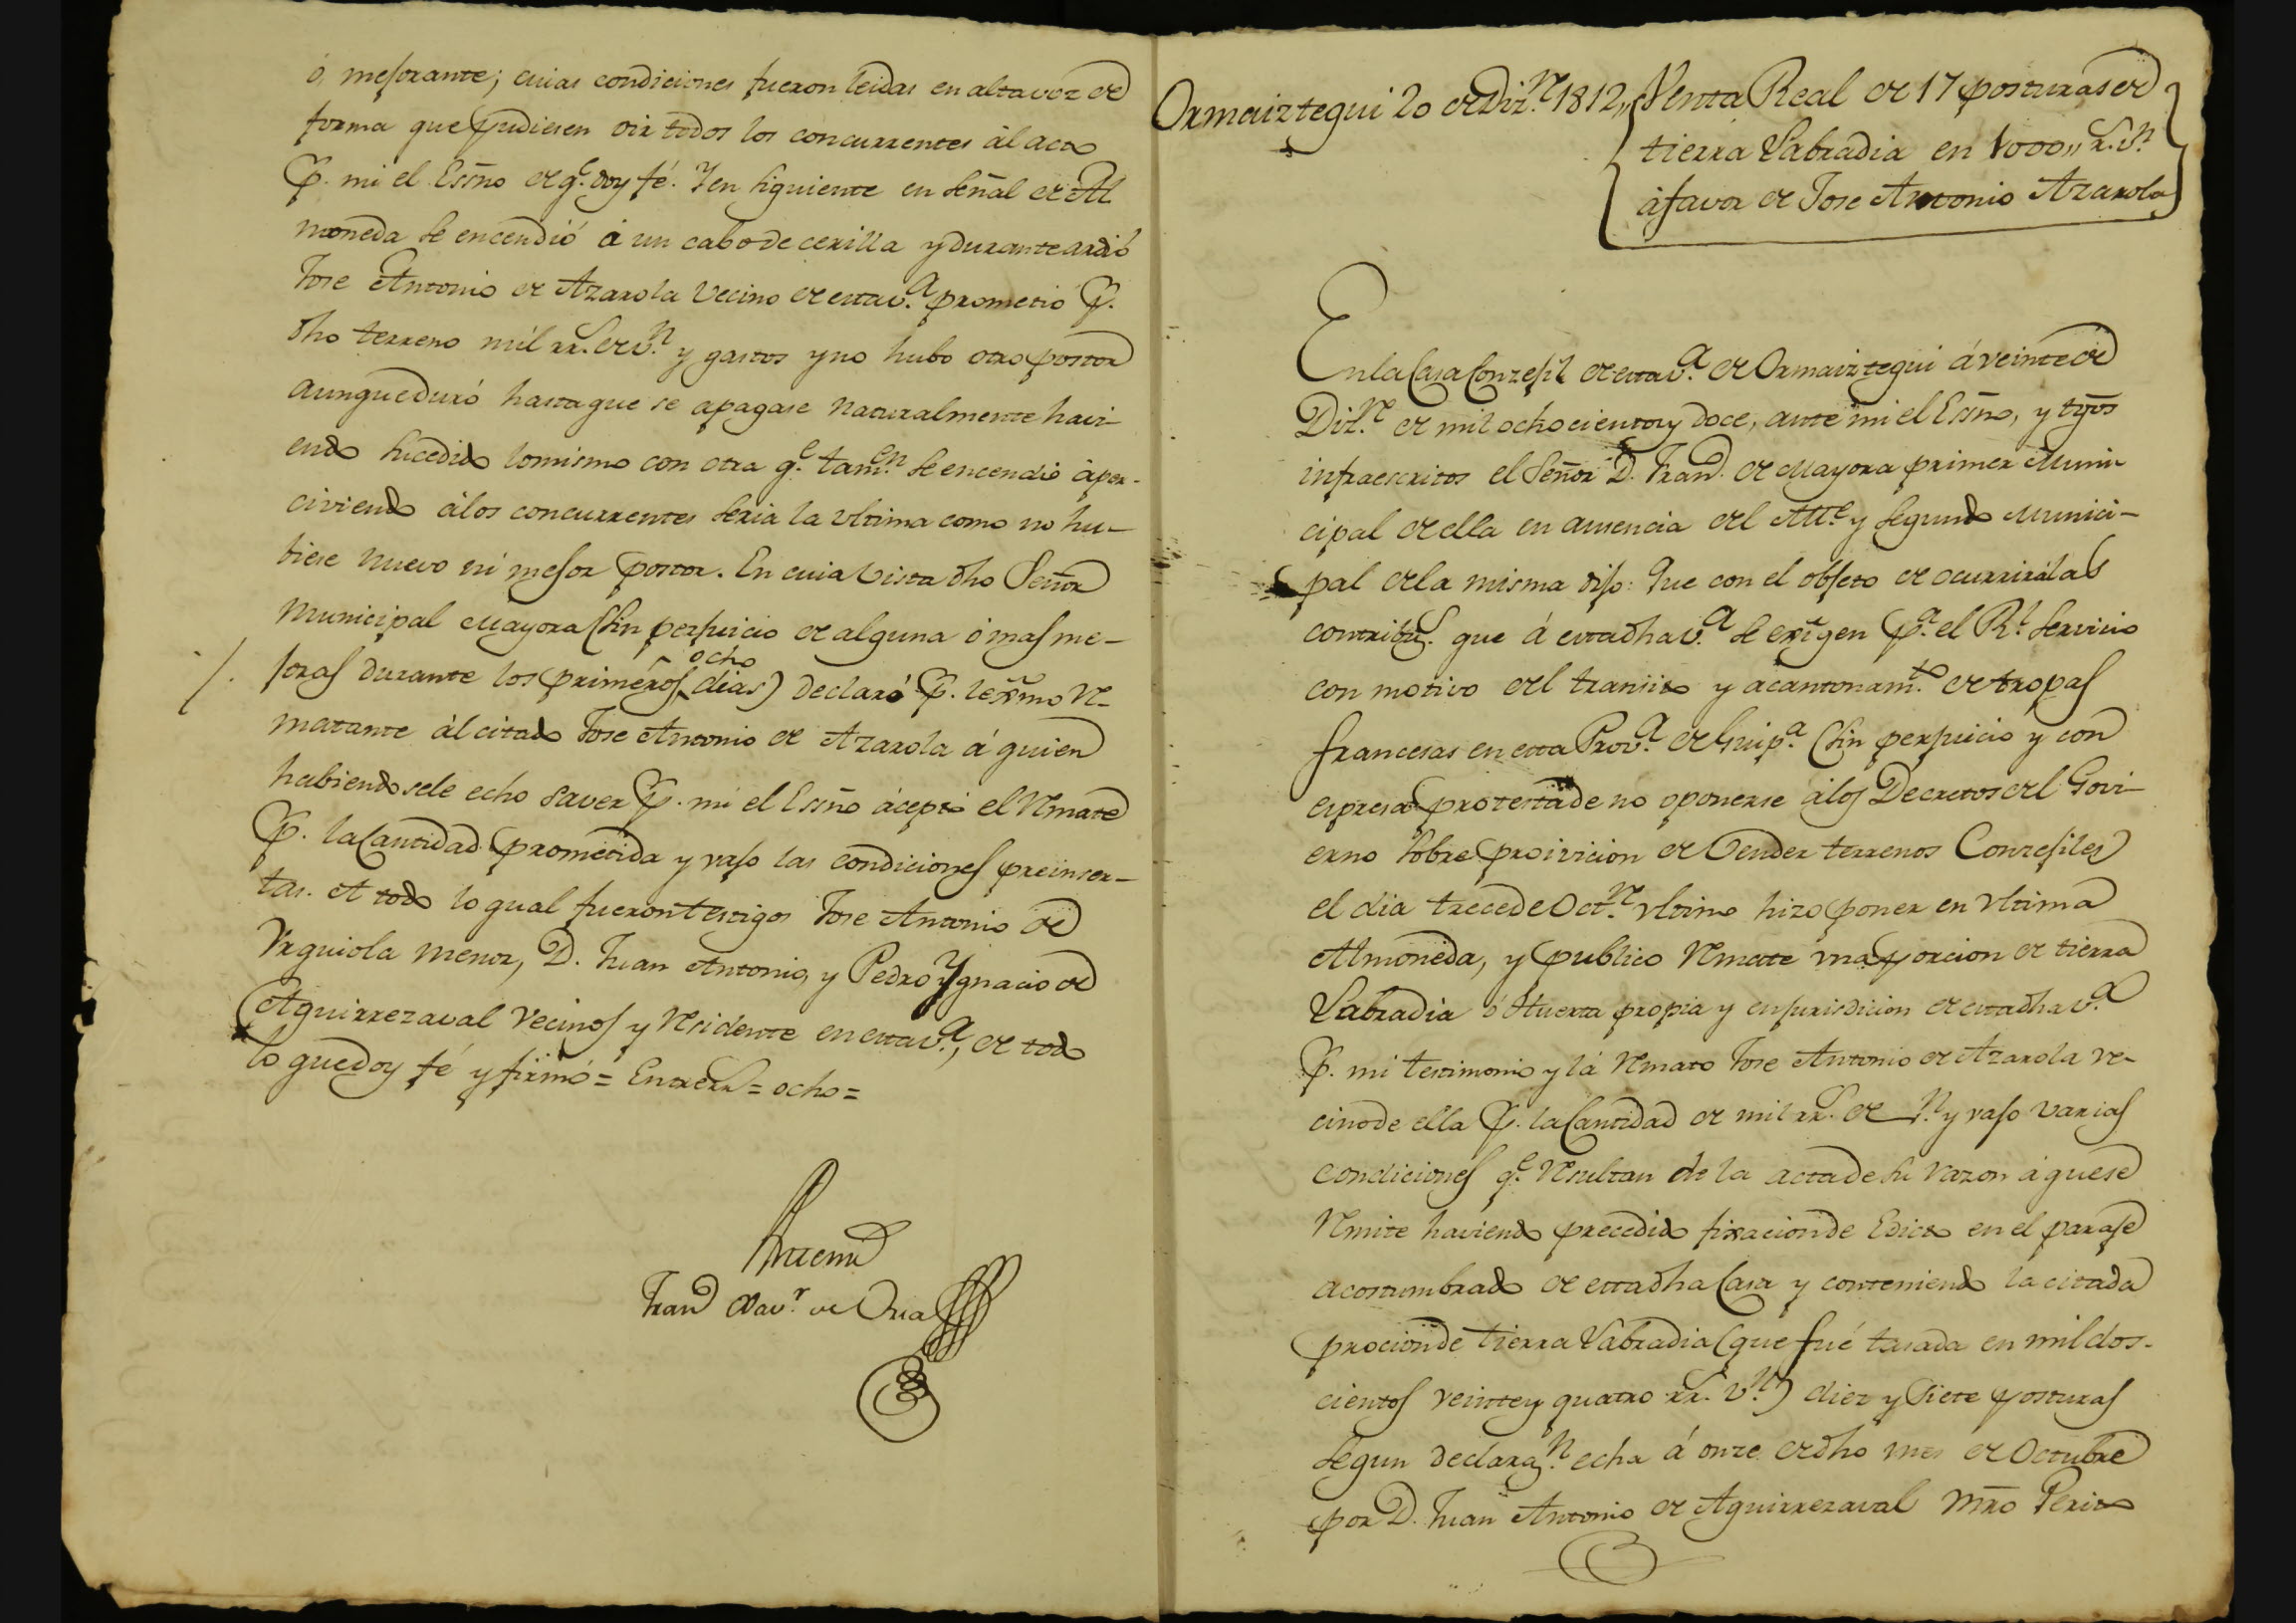 ó, mejorante; cuias condiciones fueron leidas en alta voz de
forma que pudiesen oir todos los concurrentes àl acto
P. mi el Essño de q.e doy fé. Y en siguiente en señal de Al
moneda se encendió á un cabo de cerilla y durante ardió
Jose Antonio de Azarola Vecino de esta v.a prometió P.
dho terreno mil rr.s de v.n y gastos y no hubo otro postor
aunque duró hasta que se apagase naturalmente havi-
endo sucedido lo mismo con otra q.e tam.en se encendió aper-
civiendo àlos concurrentes seria la ultima como no hu-
biese nuevo ni mejor postor. En cuia vista dho Señor
Municipal Mayora (sin perjuicio de alguna ó mas me-
joras durante los primeros ocho dias) declaró P. lexmo Re-
matante àl citado Jose Antonio de Azarola á quien
habiendosele echo saver P. mi el Essño àceptó el Remate
P. la Cantidad prometida y vajo las condiciones preinser-
tas. A todo lo qual fueron testigos Jose Antonio de
Urquiola menor, D. Juan Antonio, y Pedro Ygnacio de
Aguirrezaval Vecinos y Residente en esta v.a, de todo
lo que doy fé y firmó = Entrerr.s = ocho =
Ante mi
Fran.co Xav.r de Oria
Ormaiztegui 20 de Diz.re 1812,, Venta Real de 17 posturas de
tierra Labradia en 1000,, r.s v.n
à favor de Jose Antonio Azarola
En la Casa Conzejil de esta v.a de Ormaiztegui á veinte de
Diz.re de mil ochocientos y doce, ante mi el Essño, y tgos
infraescritos el Señor D. Fran.co de Mayora primer Muni
cipal de ella en ausencia del Alc.e y segundo Munici-
pal de la misma dijo: Que con el objeto de ocurrir á las
contribu.s que á esta dha v.a se exigen p.a el R.l servicio
con motivo del transito y acantonam.to de tropas
francesas en esta Prov.a de Guip.a (sin perjuicio y con
espresa protesta de no oponerse álos Decretos del Govi-
erno sobre proivicion de Vender terrenos Conzejiles)
el dia trece de Oct.re ultimo hizo poner en ultima
Almoneda, y publico Remate una porcion de tierra
Labradia ó Huerta propia y en jurisdicion de esta dha v.a
P. mi testimonio y lá Remató Jose Antonio de Azarola ve-
cino de ella P. la Cantidad de mil rr.s de v.n y vajo varias
condiciones q.e resultan de la acta de su razon á que se
Remite haviendo precedido fixacion de Edicto en el paraje
acostumbrado de esta dha Casa y conteniendo la citada
procion de tierra Labradia (que fué tasada en mil dos-
cientos veinte y quatro rr.s v.n) diez y siete posturas
segun declara.n echa á onze de dho mes de Octubre
por D. Juan Antonio de Aguirrezaval Mro Perito